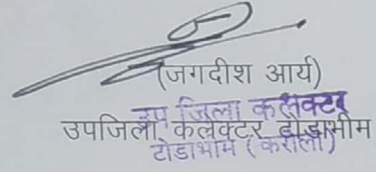 (जगदीश आर्य)
उप जिला कलक्टर
उपजिला कलेक्टर टोडाभीम
टोडाभीम (करौली)